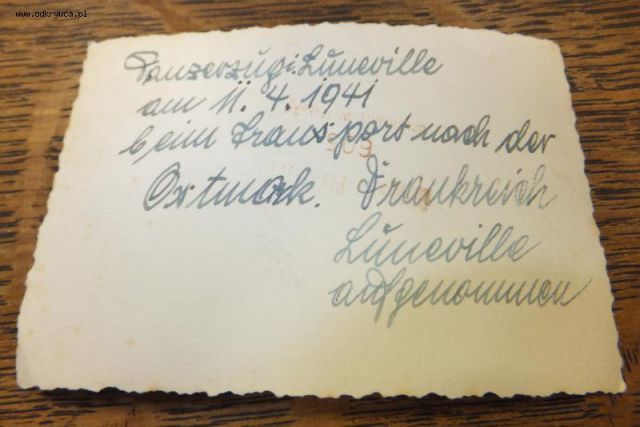 www.odkrywca.pl
Panzerzug i. Luneville
am 11. 4. 1941
beim Transport nach der
Ostmark. Frankreich
Luneville
aufgenommen